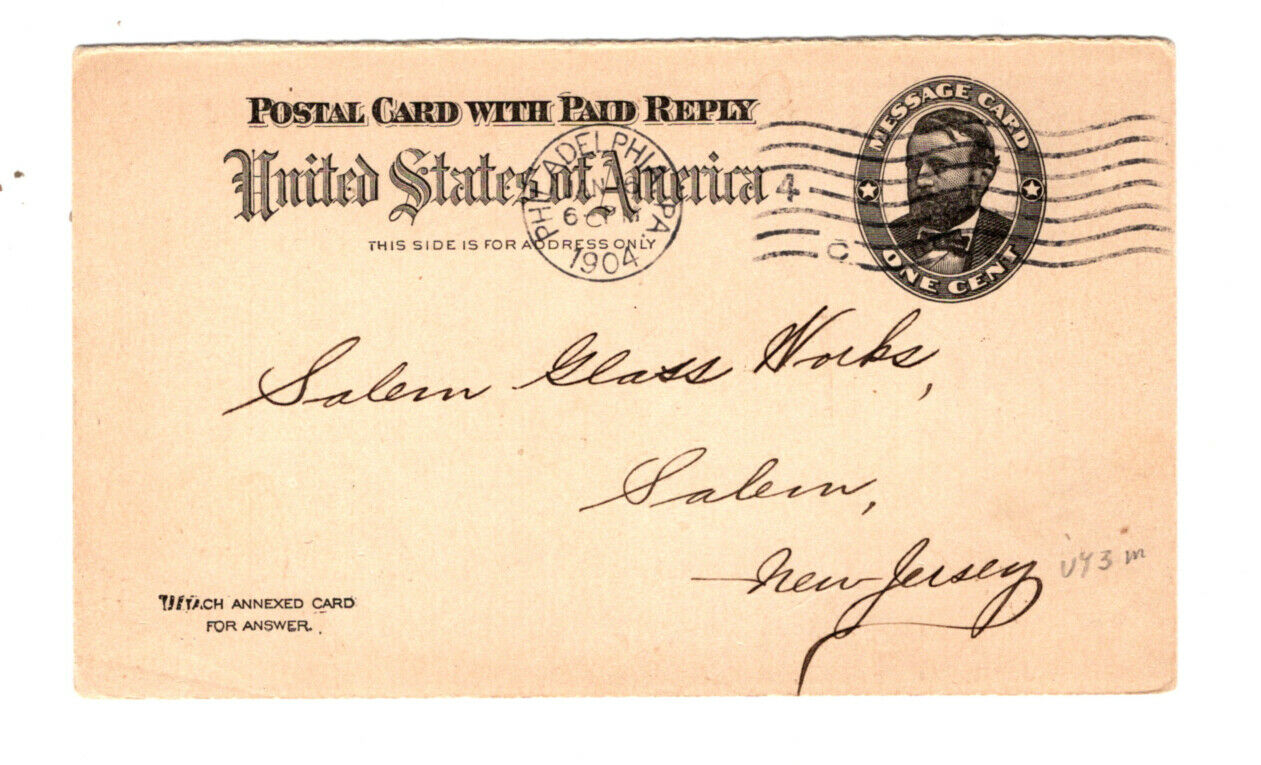 POSTAL CARD WITH PAID REPLY
United States of America
THIS SIDE IS FOR ADDRESS ONLY
PHILADELPHIA, PA.
6 PM
1904
4
C
MESSAGE CARD
ONE CENT
Salem Glass Works,
Salem,
New Jersey
UY3 m
DETACH ANNEXED CARD
FOR ANSWER.